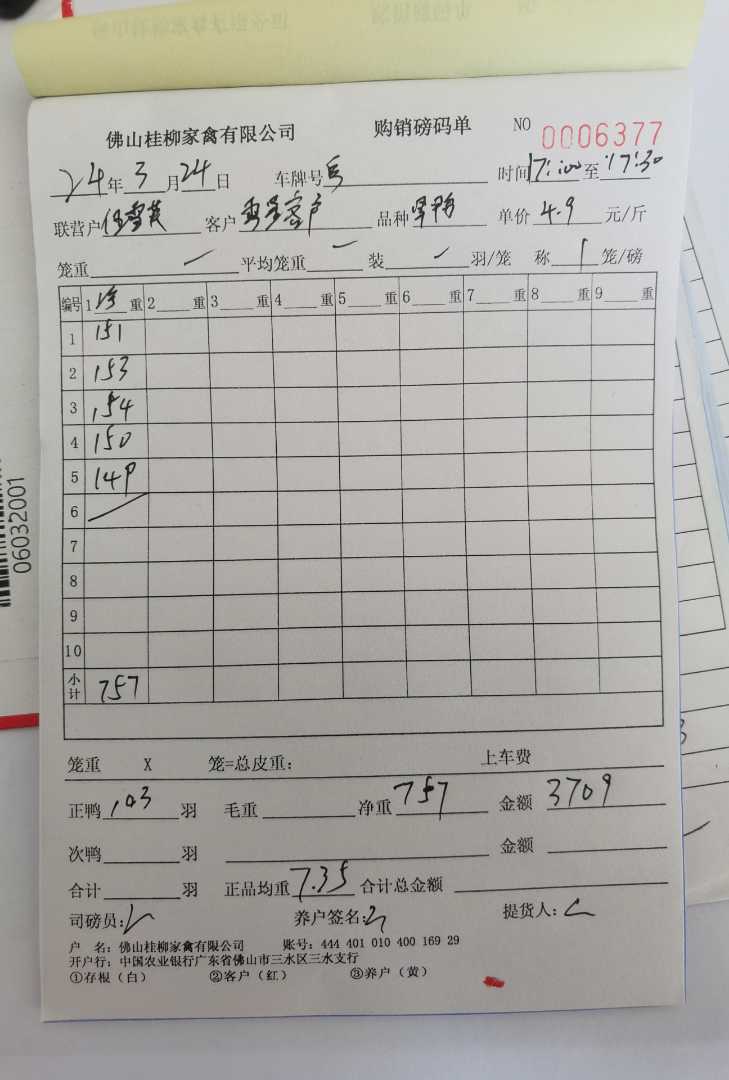 佛山桂柳家禽有限公司 购销磅码单 NO 0006377
24年3月24日 车牌号 时间17:00至17:30
联营户 客户 品种 单价4.9元/斤
笼重 平均笼重 装 羽/笼 称1笼/磅
编号 1 重 2 重 3 重 4 重 5 重 6 重 7 重 8 重 9 重
1 151
2 153
3 154
4 150
5 149
6
7
8
9
10
小计 757
笼重 X 笼=总皮重: 上车费
正鸭103羽 毛重 净重757 金额3709
次鸭 羽 金额
合计 羽 正品均重7.35 合计总金额
司磅员: 养户签名: 提货人:
户 名: 佛山桂柳家禽有限公司 账号: 444 401 010 400 169 29
开户行: 中国农业银行广东省佛山市三水区三水支行
①存根（白） ②客户（红） ③养户（黄）
06032001